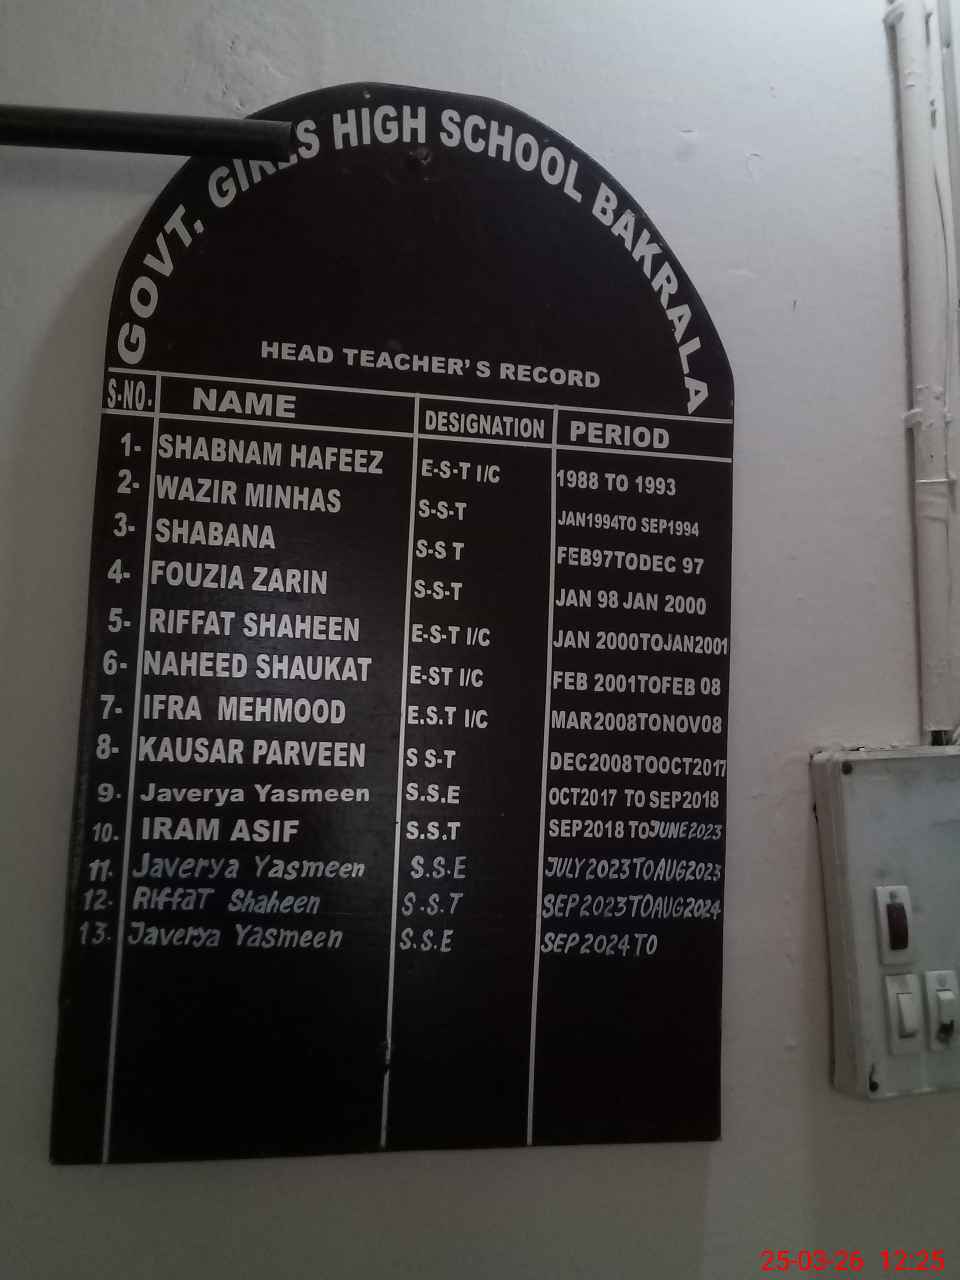 GOVT. GIRLS HIGH SCHOOL BAKRALA
HEAD TEACHER'S RECORD
S-NO. NAME DESIGNATION PERIOD
1- SHABNAM HAFEEZ E-S-T I/C 1988 TO 1993
2- WAZIR MINHAS S-S-T JAN1994TO SEP1994
3- SHABANA S-S T FEB97TODEC 97
4- FOUZIA ZARIN S-S-T JAN 98 JAN 2000
5- RIFFAT SHAHEEN E-S-T I/C JAN 2000TOJAN2001
6- NAHEED SHAUKAT E-ST I/C FEB 2001TOFEB 08
7- IFRA MEHMOOD E.S.T I/C MAR2008TONOV08
8- KAUSAR PARVEEN S S-T DEC2008TOOCT2017
9. Javerya Yasmeen S.S.E OCT2017 TO SEP2018
10. IRAM ASIF S.S.T SEP2018 TOJUNE2023
11. Javerya Yasmeen S.S.E JULY2023TOAUG2023
12. RiffaT Shaheen S.S.T SEP2023TOAUG2024
13. Javerya Yasmeen S.S.E SEP2024TO
25-03-26 12:25